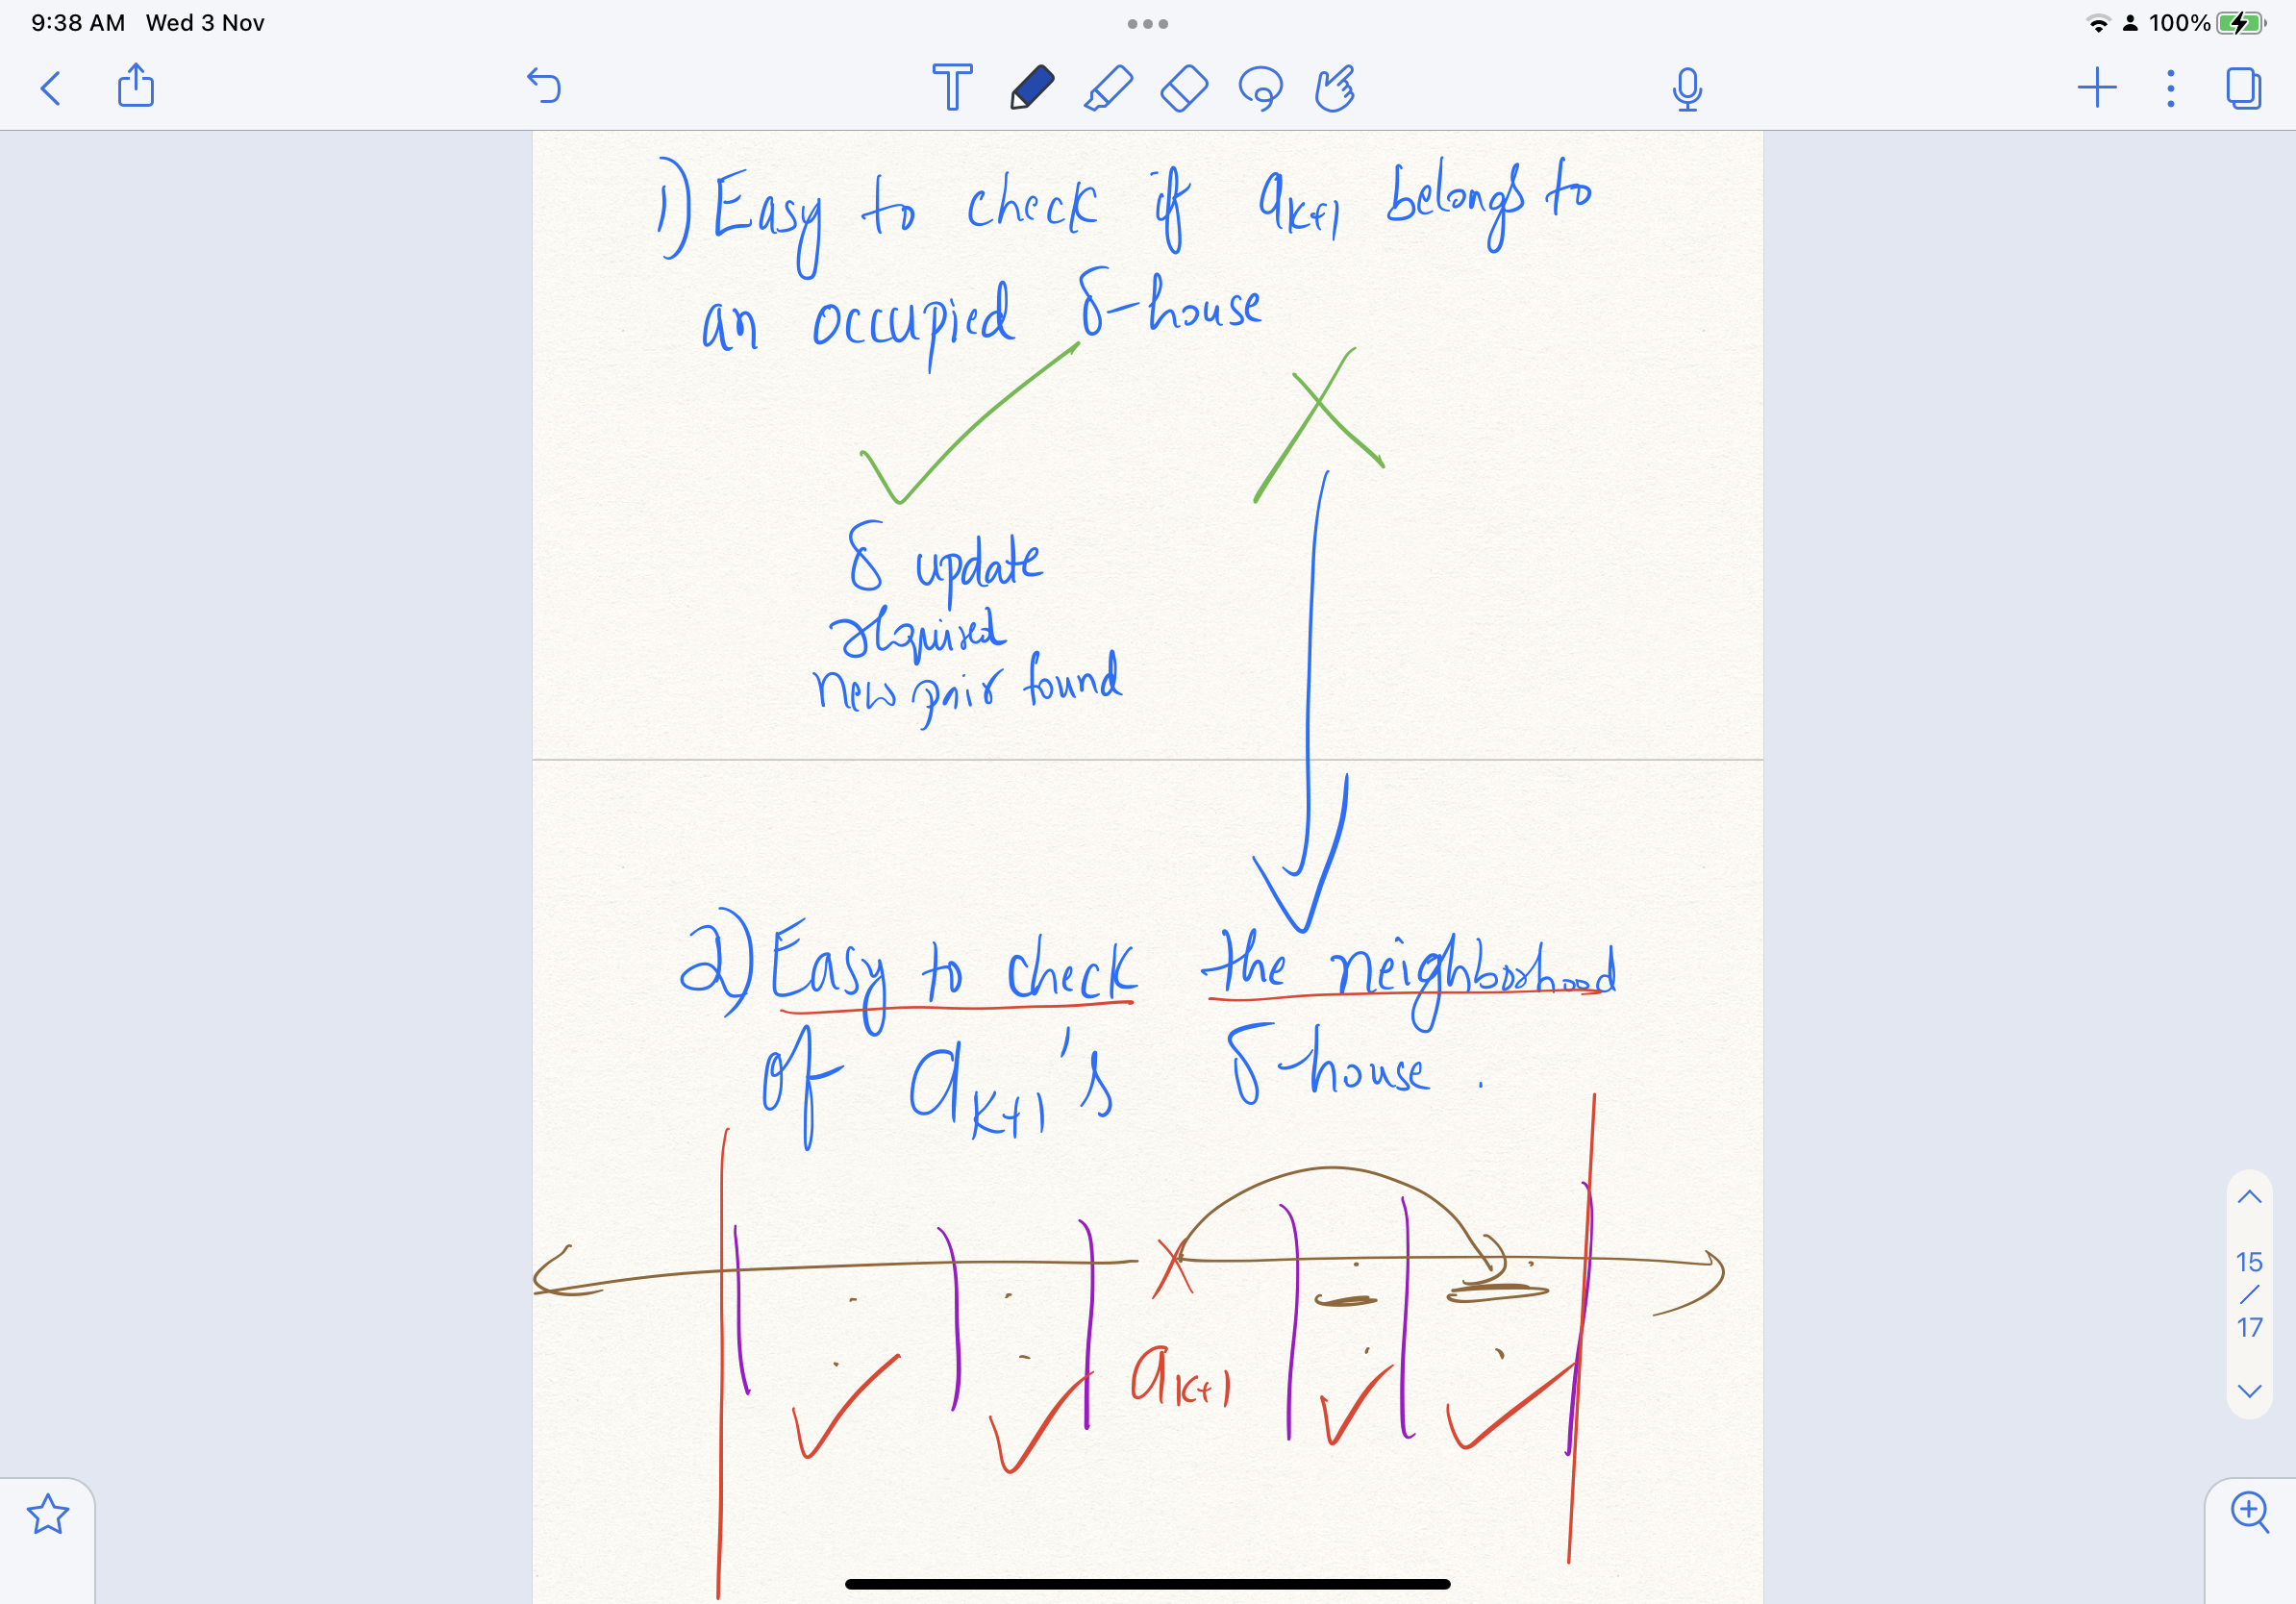 9:38 AM Wed 3 Nov
100%
1) Easy to check if a_{k+1} belongs to
an occupied δ-house
δ update
required
new pair found
2) Easy to check the neighborhood
of a_{k+1}'s δ-house.
a_{k+1}
15
/
17